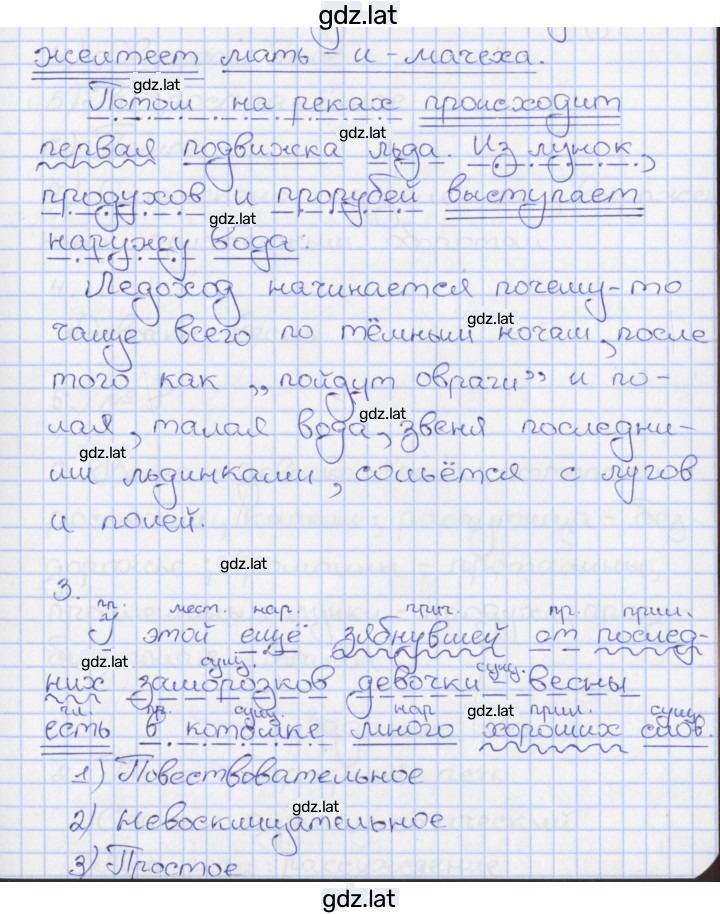 gdz.lat
желтеет мать-и-мачеха.
gdz.lat
Потом на реках происходит
gdz.lat
первая подвижка льда. Из лунок,
продухов и прорубей выступает
gdz.lat
наружу вода.
Ледоход начинается почему-то
gdz.lat
чаще всего по тёмным ночам, после
того как „пойдут овраги” и по-
gdz.lat
лая, талая вода, звеня последни-
gdz.lat
ми льдинками, сольётся с лугов
и полей.
gdz.lat
3.
пр. мест. нар. прич. пр. прил.
У этой ещё зябнувшей от послед-
gdz.lat
сущ. сущ.
них заморозков девочки весны
гл. пр. сущ. нар. gdz.lat прил. сущ.
есть в котомке много хороших слов.
1) Повествовательное
gdz.lat
2) Невосклицательное
3) Простое
gdz.lat